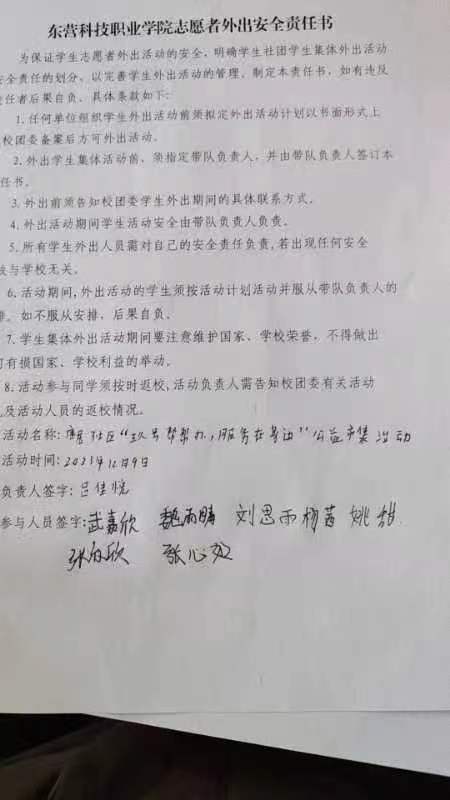 东营科技职业学院志愿者外出安全责任书
为保证学生志愿者外出活动的安全，明确学生社团学生集体外出活动
安全责任的划分，以完善学生外出活动的管理，制定本责任书，如有违反
责任者后果自负。具体条款如下：
1.任何单位组织学生外出活动前须拟定外出活动计划以书面形式上
校团委备案后方可外出活动。
2.外出学生集体活动前，须指定带队负责人，并由带队负责人签订本
任书。
3.外出前须告知校团委学生外出期间的具体联系方式。
4.外出活动期间学生活动安全由带队负责人负责。
5.所有学生外出人员需对自己的安全责任负责,若出现任何安全
故与学校无关。
6.活动期间,外出活动的学生须按活动计划活动并服从带队负责人的
排。如不服从安排，后果自负。
7.学生集体外出活动期间要注意维护国家、学校荣誉，不得做出
可有损国家、学校利益的举动。
8.活动参与同学须按时返校,活动负责人需告知校团委有关活动
及活动人员的返校情况。
活动名称:社区“帮帮办，服务在身边”公益市集活动
活动时间:2023年12月9日
负责人签字:吕佳悦
参与人员签字:武嘉欣 魏雨晴 刘思雨 杨茜 姚甜
张欣 张心